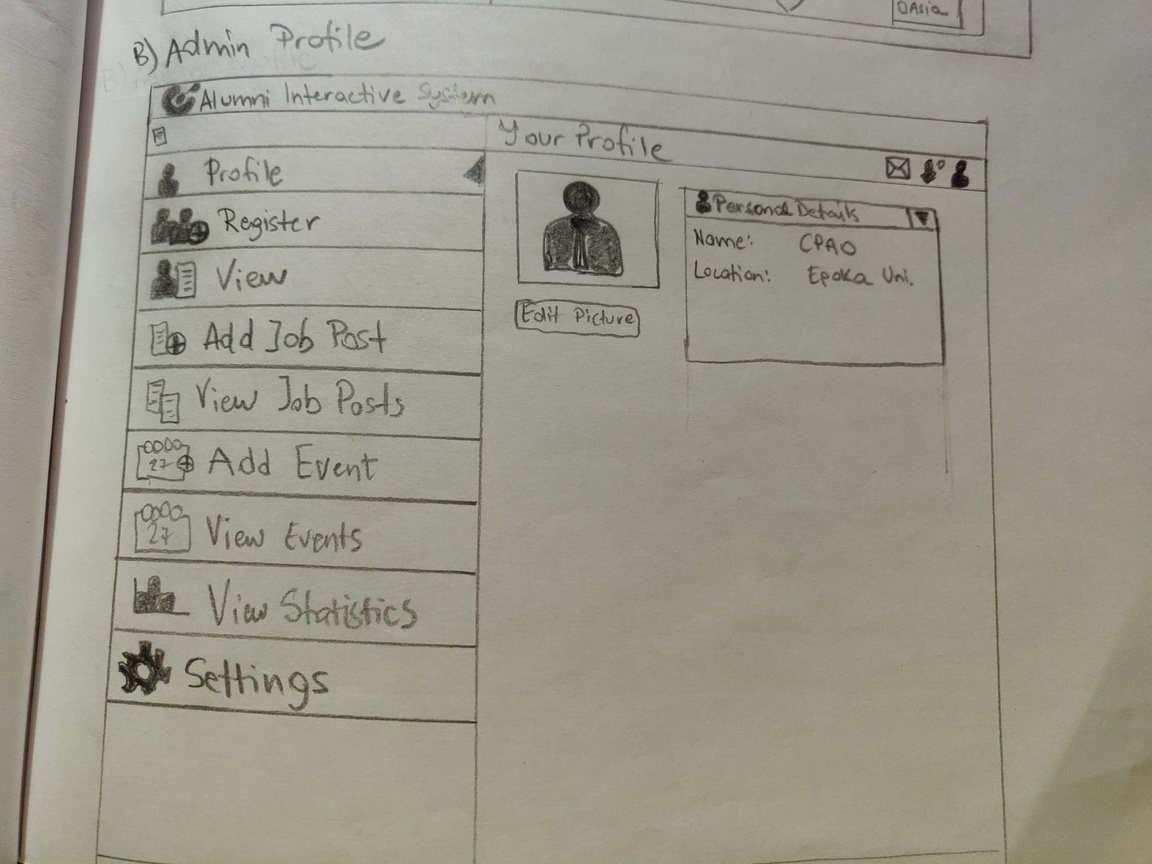 OAsia
B) Admin Profile
Alumni Interactive System
Your Profile
Profile
Register
View
Add Job Post
View Job Posts
27
Add Event
27
View Events
View Statistics
Settings
Edit Picture
Personal Details
Name: CPAO
Location: Epoka Uni.